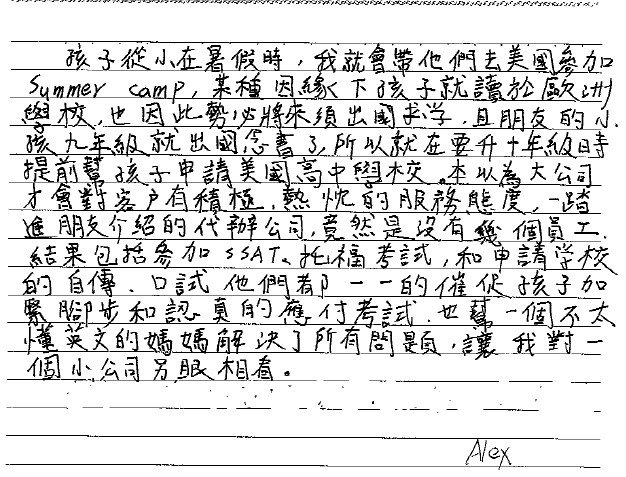 孩子從小在暑假時，我就會帶他們去美國參加
Summer camp，某種因緣下孩子就讀於歐洲
學校，也因此勢必將來須出國求學，且朋友的小
孩九年級就出國念書了，所以就在要升十年級時
提前幫孩子申請美國高中學校。本以為大公司
才會對客戶有積極、熱忱的服務態度，一踏
進朋友介紹的代辦公司，竟然是沒有幾個員工，
結果包括參加SSAT、托福考試，和申請學校
的自傳、口試他們都一一的催促孩子加
緊腳步和認真的應付考試，也幫一個不太
懂英文的媽媽解決了所有問題，讓我對一
個小公司另眼相看。
Alex